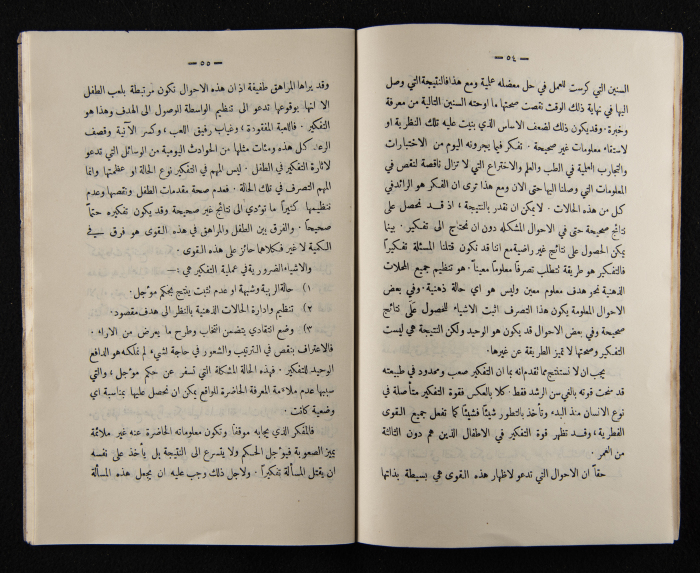 — ٥٤ —
السنين التي كرست للعمل في حل معضله علمية ومع هذا فالنتيجة التي وصل
اليها في نهاية ذلك الوقت نقصت صحتها ما اوحته السنين التالية من معرفة
وخبرة. وقد يكون ذلك لضعف الاساس الذي بنيت عليه تلك النظرية او
لاستقاء معلومات غير صحيحة. تفكر فيما يجرونه اليوم من الاختبارات
والتجارب العملية في الطب والعلم والاختراع التي لا تزال ناقصة لنقص في
المعلومات التي وصلنا اليها حتى الان ومع هذا ترى ان الفكر هو الرائد في
كل من هذه الحالات. لا يمكن ان نقدر بالنتيجة، اذ قد نحصل على
نتائج صحيحة حتى في الاحوال المشكله دون ان نحتاج الى تفكير. بينما
يمكن الحصول على نتائج غير راضية مع اننا قد نكون قتلنا المسئلة تفكيراً
فالتفكير هو طريقة تتطلب تصرفاً معلوماً معيناً. هو تنظيم جميع المحلات
الذهنية نحو هدف معلوم معين وليس هو اي حالة ذهنية. وفي بعض
الاحوال المعلومة يكون هذا التصرف اثبت الاشياء للحصول على نتائج
صحيحة وفي بعض الاحوال قد يكون هو الوحيد ولكن النتيجة هي ليست
التفكير وصحتها لا تميز الطريقة عن غيرها.
يجب ان لا نستنتج مما تقدم انه بما ان التفكير صعب ومحدود في طبيعته
قد منحت قوته بالغي سن الرشد فقط. كلا بالعكس فقوة التفكير متأصلة في
نوع الانسان منذ البدء وتأخذ بالتطور شيئاً فشيئاً كما تفعل جميع القوى
الفطرية، وقد تظهر قوة التفكير في الاطفال الذين هم دون الثالثة
من العمر.
حقاً ان الاحوال التي تدعو لاظهار هذه القوى هي بسيطة بذاتها
— ٥٥ —
وقد يراها المراهق طفيفة اذ ان هذه الاحوال تكون مرتبطة بلعب الطفل
الا انها بوقوعها تدعو الى تنظيم الواسطة للوصول الى الهدف وهذا هو
التفكير. فاللعبة المفقودة، وغياب رفيق اللعب، وكسر الآنية وقصف
الرعد كل هذه ومئات مثلها من الحوادث اليومية من الوسائل التي تدعو
لاثارة التفكير في الطفل. ليس المهم في التفكير نوع الحالة او عظمتها وانما
المهم التصرف في تلك الحالة. فعدم صحة مقدمات الطفل ونقصها وعدم
تنظيمها كثيراً ما تؤدي الى نتائج غير صحيحة وقد يكون تفكيره حتماً
صحيحاً. والفرق بين الطفل والمراهق في هذه القوى هو فرق في
الكمية لا غير فكلاهما حائز على هذه القوى.
والاشياء الضرورية في عملية التفكير هي:—
١) حالة الريبة وشبهة او عدم تثبت ينتج بحكم مؤجل.
٢) تنظيم وادارة الحالات الذهنية بالنظر الى هدف مقصود.
٣) وضع انتقادي يتضمن انتخاب وطرح ما يعرض من الاراء.
فالاعتراف بنقص في الترتيب والشعور في حاجة لشيء لم نملكه هو الدافع
الوحيد للتفكير. فهذه الحالة المشكلة التي تسفر عن حكم مؤجل، والتي
سببها عدم ملاءمة المعرفة الحاضرة للواقع يمكن ان تحصل عليها بمناسبة اي
وضعية كانت.
فالمفكر الذي يجابه موقفاً وتكون معلوماته الحاضرة عنه غير ملائمة
يميز الصعوبة فيؤجل الحكم ولا يتسرع الى النتيجة بل يأخذ على نفسه
ان يقتل المسألة تفكيراً. ولاجل ذلك وجب عليه ان يجعل هذه المسألة